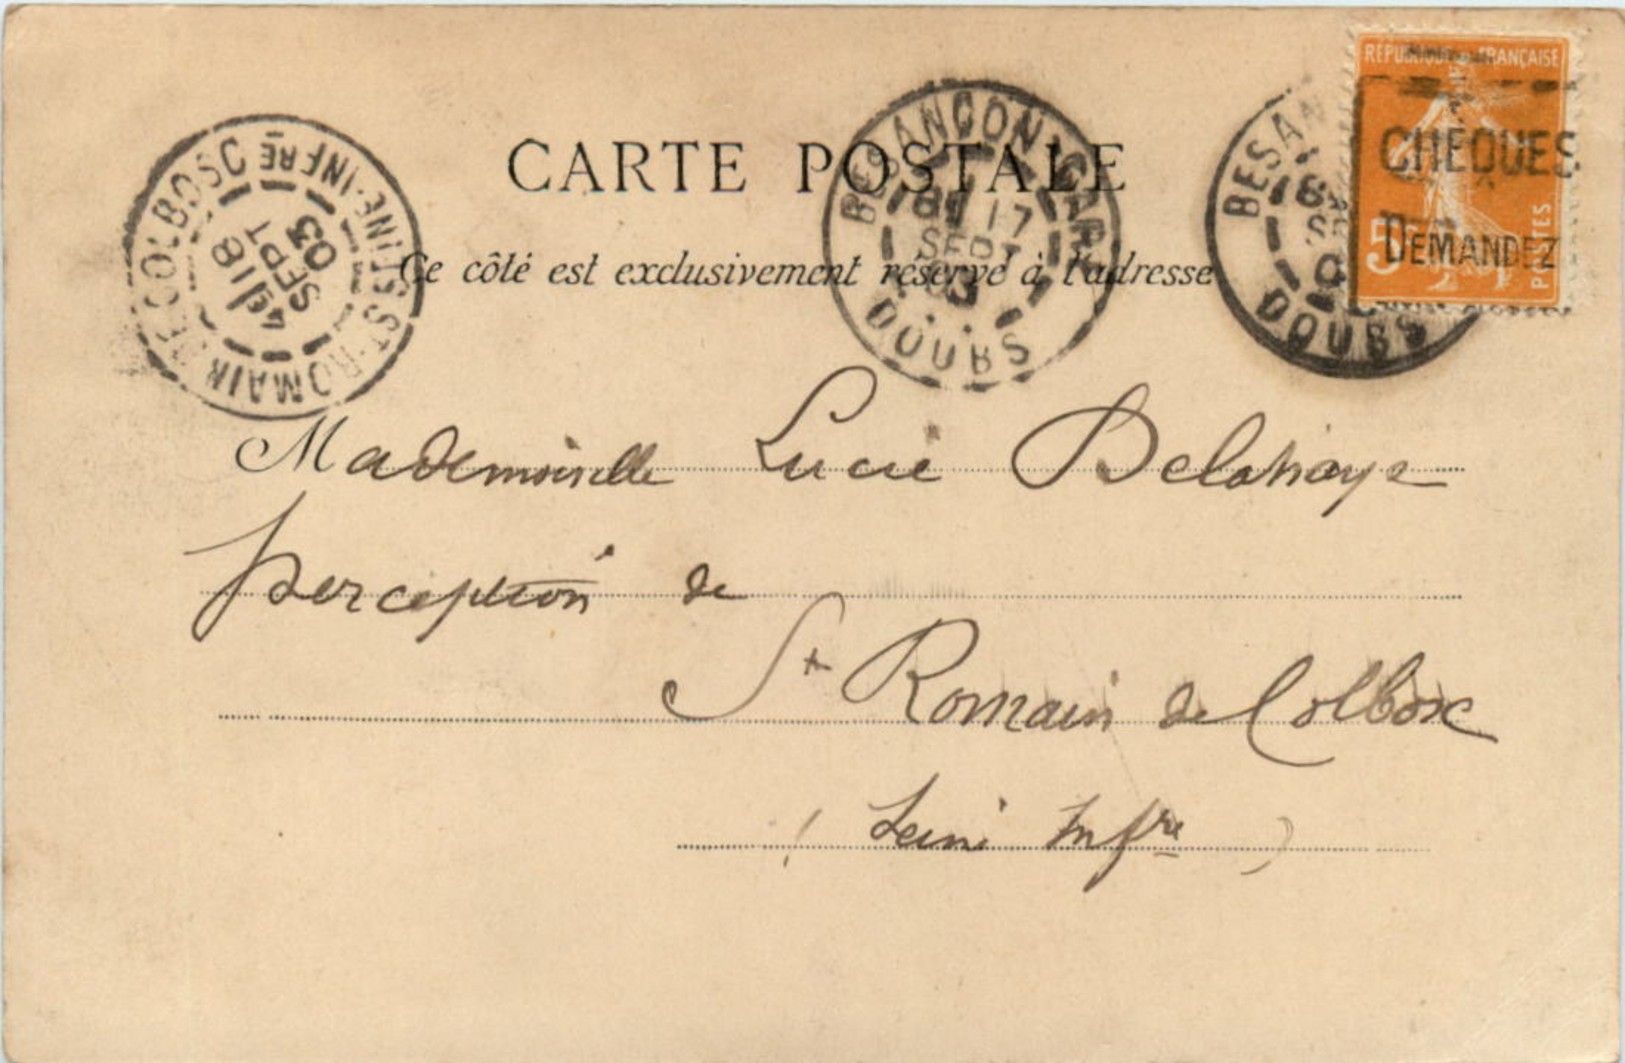 RÉPUBLIQUE FRANÇAISE
CHEQUES
DEMANDEZ
5
POSTES
CARTE POSTALE
Ce côté est exclusivement réservé à l'adresse
ST ROMAIN DE COLBOSC SEINE-INFRE
4E 18
SEPT
03
BESANÇON-GARE
17
SEPT
03
DOUBS
BESAN
DOUBS
Mademoiselle Lucie Delahaye
perception de
St Romain de Colbosc
( Seine Infre )